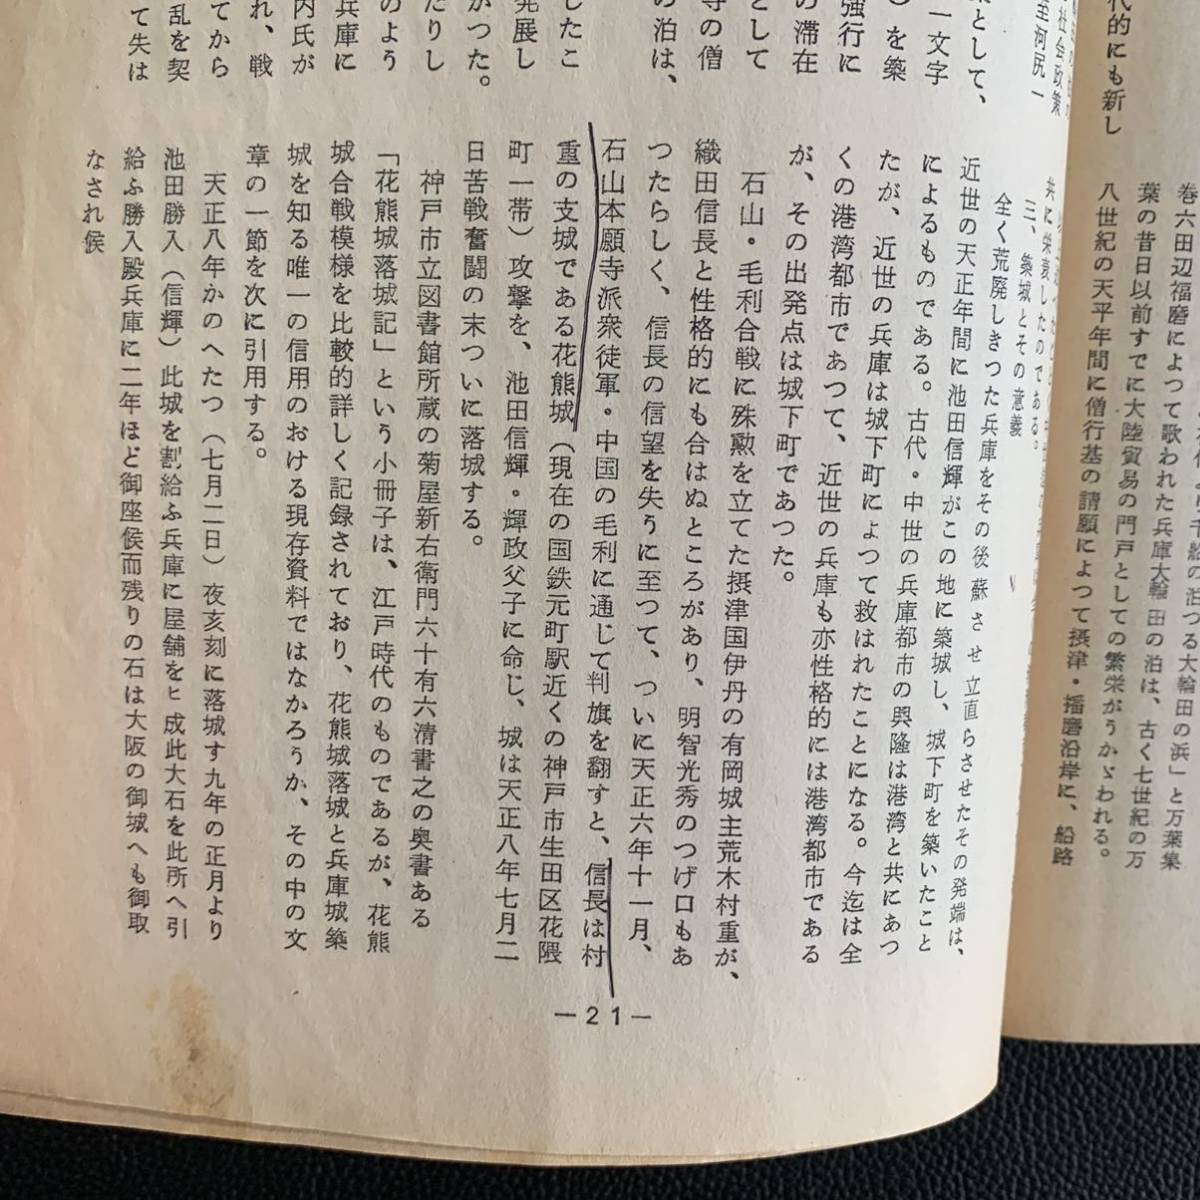 代的にも新し
巻六田辺福麿によつて歌われた兵庫大輪田の泊は、古く七世紀の万
葉の昔日以前すでに大陸貿易の門戸としての繁栄がうかゞわれる。
八世紀の天平年間に僧行基の請願によつて摂津・播磨沿岸に、船路
社会政策
至河尻一
策として、
一文字
）を築
強行に
の滞在
として
寺の僧
の泊は、
したこ
発展し
かつた。
たりし
のよう
兵庫に
内氏が
れ、戦
てから
乱を契
て失は
共に栄衰したのである。
三、築城とその意義
全く荒廃しきつた兵庫をその後蘇させ立直らさせたその発端は、
近世の天正年間に池田信輝がこの地に築城し、城下町を築いたこと
によるものである。古代・中世の兵庫都市の興隆は港湾と共にあつ
たが、近世の兵庫は城下町によつて救はれたことになる。今迄は全
くの港湾都市であつて、近世の兵庫も亦性格的には港湾都市である
が、その出発点は城下町であつた。
石山・毛利合戦に殊勲を立てた摂津国伊丹の有岡城主荒木村重が、
織田信長と性格的にも合はぬところがあり、明智光秀のつげ口もあ
つたらしく、信長の信望を失うに至つて、ついに天正六年十一月、
石山本願寺派衆徒軍・中国の毛利に通じて判旗を翻すと、信長は村
重の支城である花熊城（現在の国鉄元町駅近くの神戸市生田区花隈
町一帯）攻撃を、池田信輝・輝政父子に命じ、城は天正八年七月二
日苦戦奮闘の末ついに落城する。
神戸市立図書館所蔵の菊屋新右衛門六十有六清書之の奥書ある
「花熊城落城記」という小冊子は、江戸時代のものであるが、花熊
城合戦模様を比較的詳しく記録されており、花熊城落城と兵庫城築
城を知る唯一の信用のおける現存資料ではなかろうか、その中の文
章の一節を次に引用する。
天正八年かのへたつ（七月二日）夜亥刻に落城す九年の正月より
池田勝入（信輝）此城を割給ふ兵庫に屋舗をヒ成此大石を此所へ引
給ふ勝入殿兵庫に二年ほど御座候而残りの石は大阪の御城へも御取
なされ候
—21—